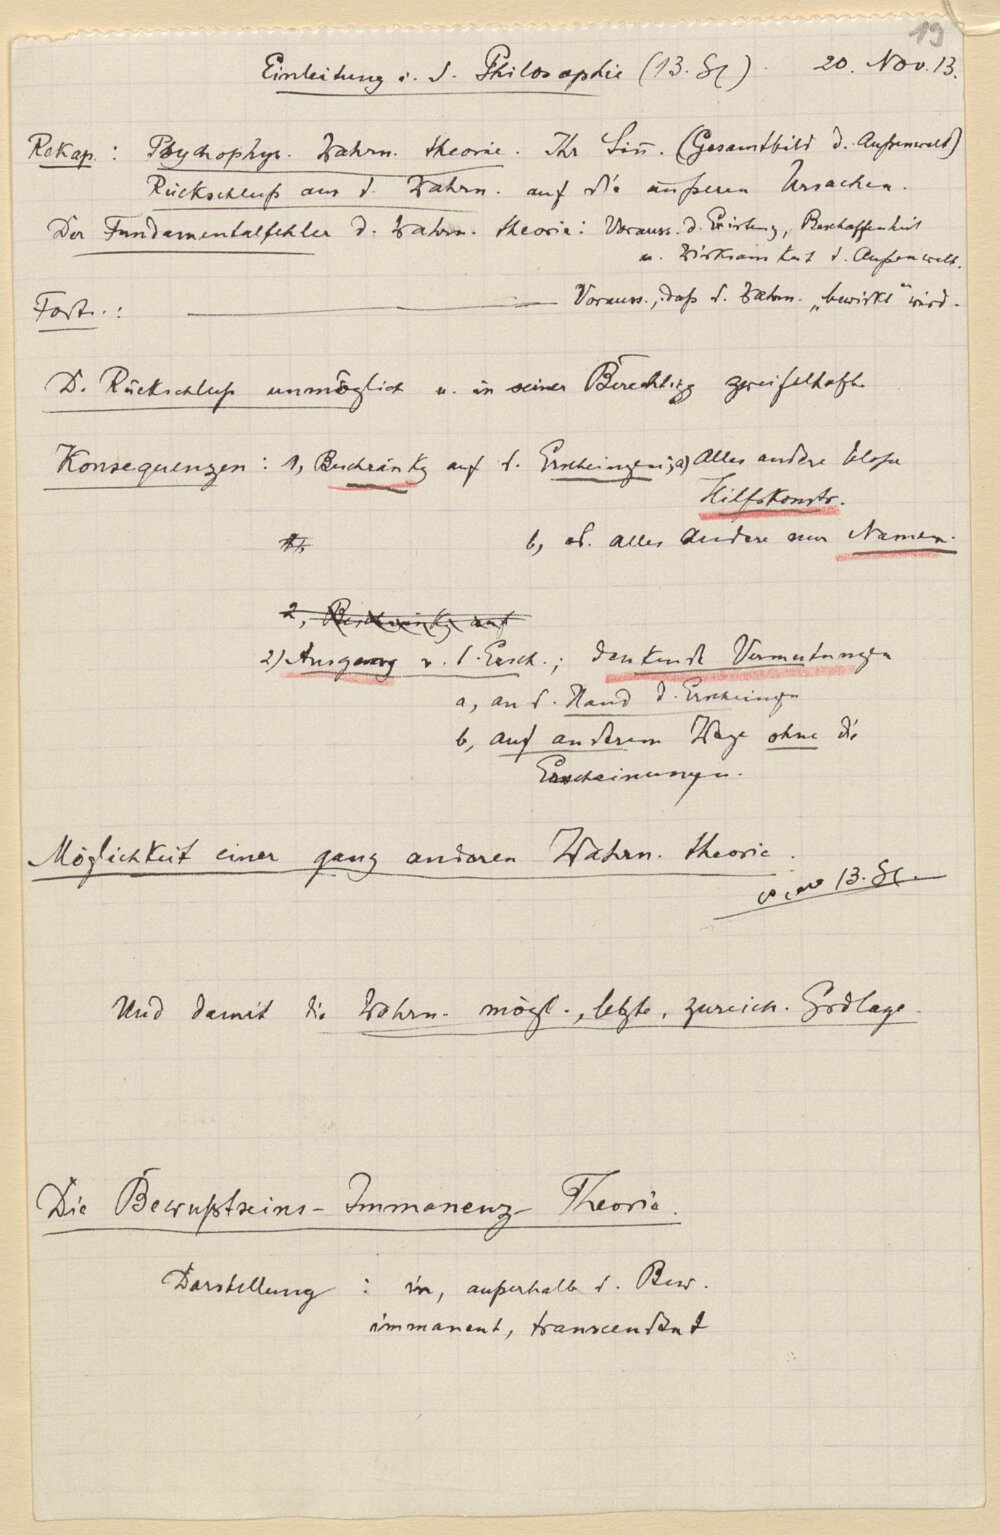 19
Einleitung i. d. Philosophie (13. St.) 20. Nov. 13.
Rekap.: Psychophys. Wahrn. theorie. Ihr Sinn. (Gesamtbild d. Außenwelt)
Rückschluß aus d. Wahrn. auf die äußeren Ursachen.
Der Fundamentalfehler d. Wahrn. theorie: Vorauss. d. Existenz, Beschaffenheit
u. Wirksamkeit d. Außenwelt.
Forts.: Vorauss., daß d. Wahrn. „bewirkt“ wird.
D. Rückschluß unmöglich u. in seiner Berechtigg zweifelhaft
Konsequenzen: 1, Beschränkg auf d. Erscheingen; a) Alles andere bloße
Hilfskonstr.
b, od. alles andere nur Namen.
2, Beschränkg auf
2) Ausgang v. d. Ersch.; denkende Vermutungen
a, an d. Hand d. Erscheingn
b, auf anderem Wege ohne die
Erscheinungen.
Möglichkeit einer ganz anderen Wahrn. theorie.
13. St.
Und damit die Wahrn. mögl., letzte, zureich. Grdlage.
Die Bewußtseins-Immanenz-Theorie.
Darstellung: in, außerhalb d. Bew.
immanent, transcendent